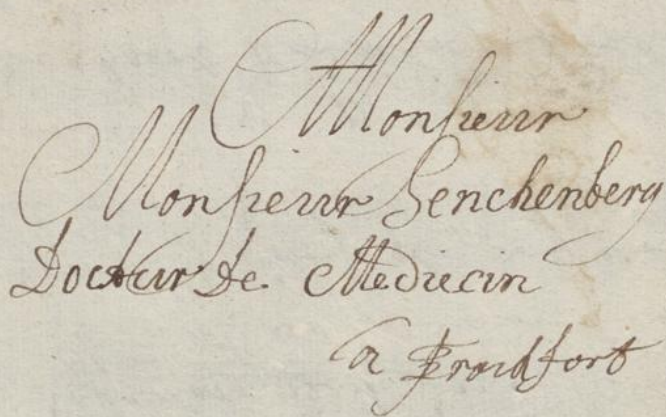 Monsieur
Monsieur Senchenberg
Docteur de Mediecin
a Francfort